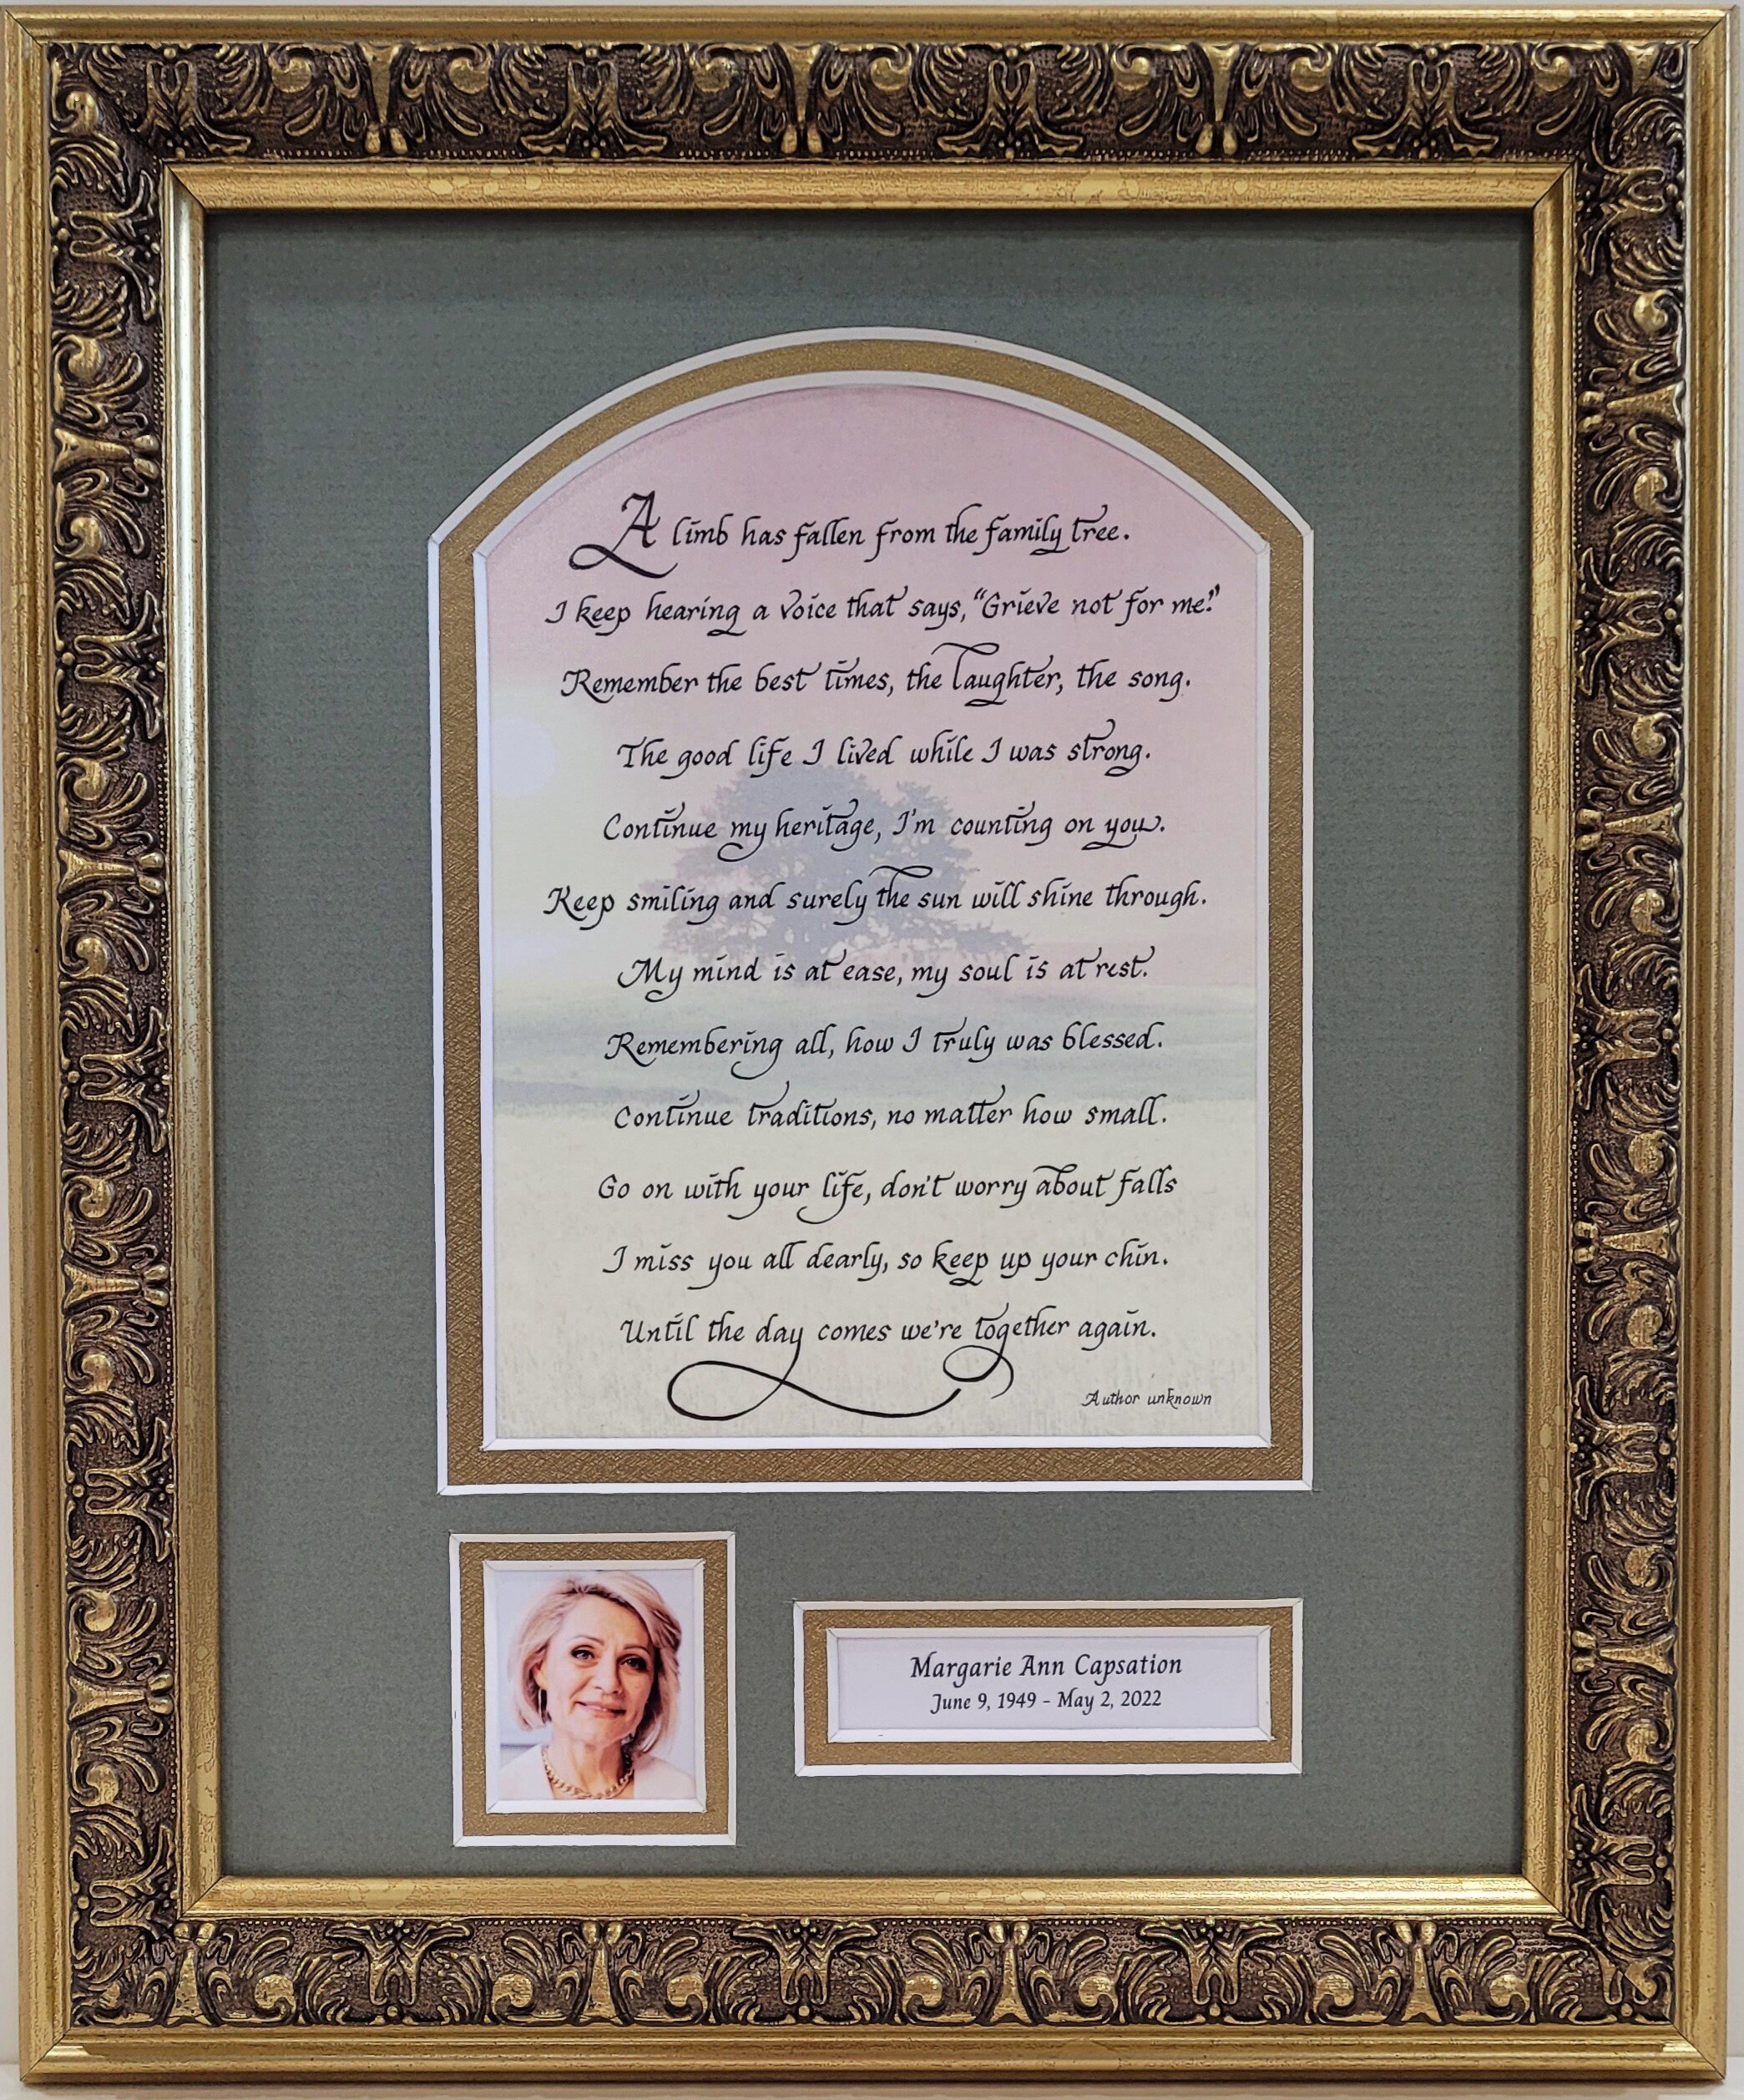 A limb has fallen from the family tree.
I keep hearing a voice that says, "Grieve not for me."
Remember the best times, the laughter, the song.
The good life I lived while I was strong.
Continue my heritage, I'm counting on you.
Keep smiling and surely the sun will shine through.
My mind is at ease, my soul is at rest.
Remembering all, how I truly was blessed.
Continue traditions, no matter how small.
Go on with your life, don't worry about falls
I miss you all dearly, so keep up your chin.
Until the day comes we're together again.
Author unknown
Margarie Ann Capsation
June 9, 1949 - May 2, 2022